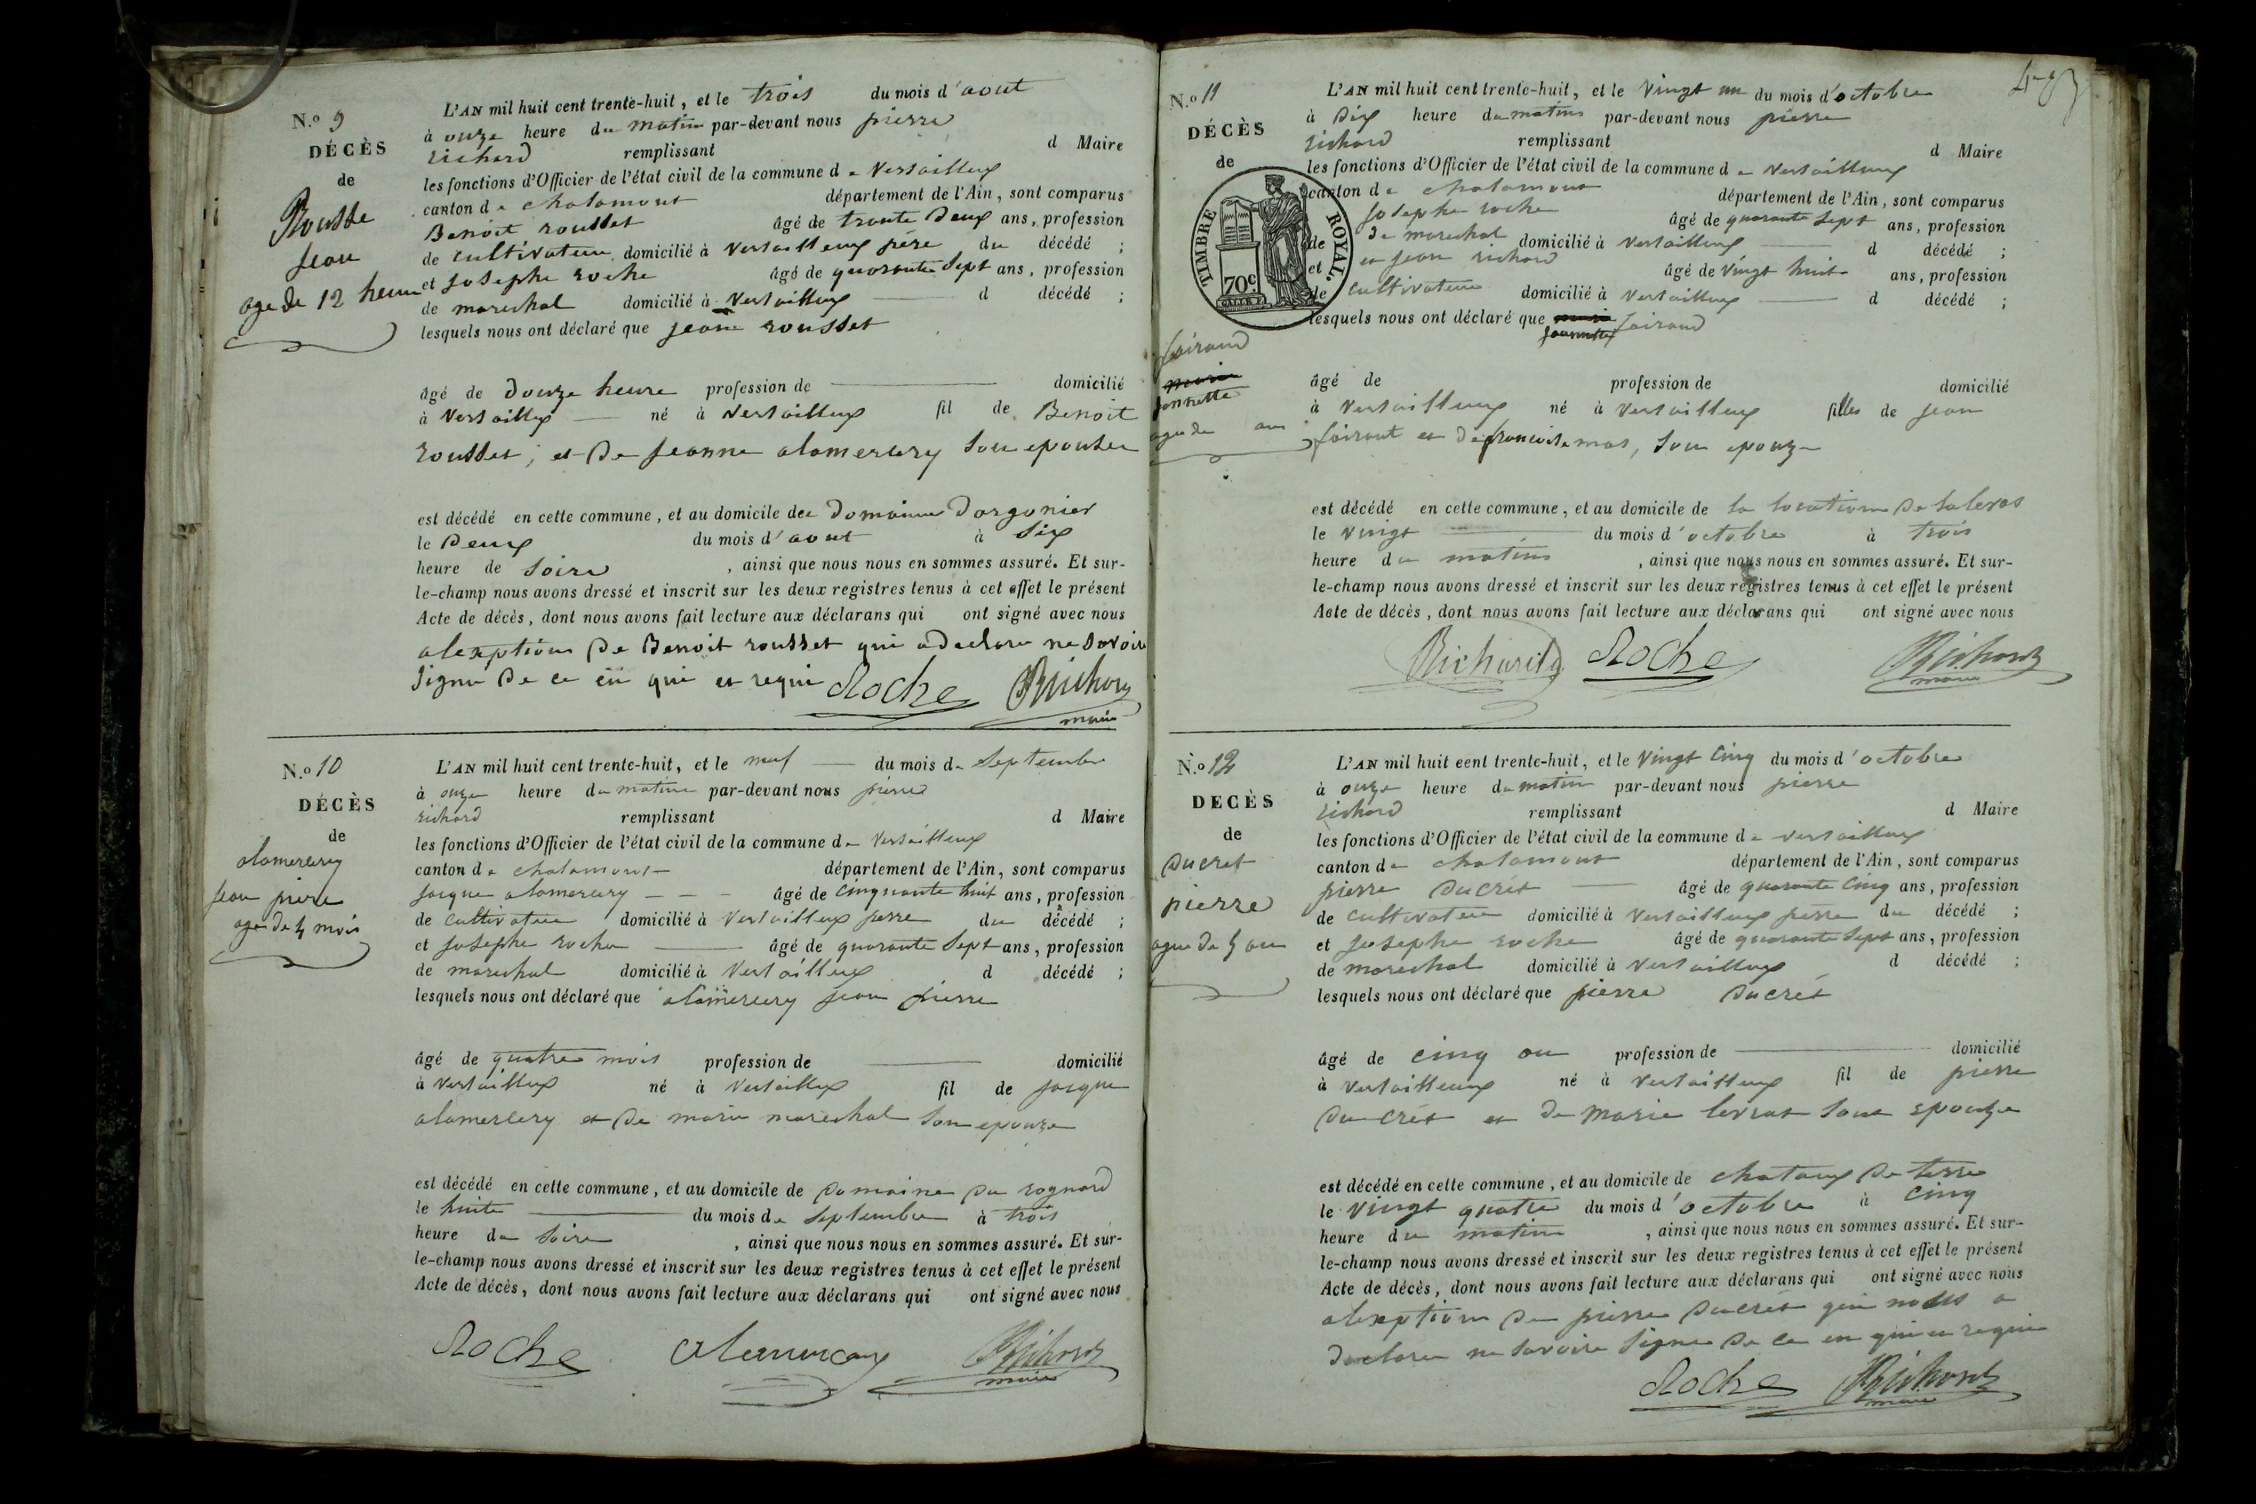 N.o 9
DÉCÈS
de
Rousse
Jean
age de 12 heure
L'AN mil huit cent trente-huit, et le trois du mois d'aout
à onze heure du matin par-devant nous pierre
richard remplissant d Maire
les fonctions d'Officier de l'état civil de la commune de Versailleux
canton de chalamont département de l'Ain, sont comparus
Benoit rousset âgé de trante Deux ans, profession
de cultivateur domicilié à Versailleux père du décédé ;
et Josephe roche âgé de quarante Sept ans, profession
de marechal domicilié à Versailleux d décédé ;
lesquels nous ont déclaré que jean rousset
âgé de Douze heure profession de domicilié
à Versaillex né à Versailleux fil de Benoit
rousset, et De jeanne alamercery Son epouse
est décédé en cette commune, et au domicile de Domaine Dargonier
le Deux du mois d'aout à Six
heure de Soire, ainsi que nous nous en sommes assuré. Et sur-
le-champ nous avons dressé et inscrit sur les deux registres tenus à cet effet le présent
Acte de décès, dont nous avons fait lecture aux déclarans qui ont signé avec nous
alexption De Benoit rousset qui a Declare ne Savoire
Signe De ce eü qui et requi Roche Richard
maire
N.o 10
DÉCÈS
de
alamercery
Jean pierre
age De 4 mois
L'AN mil huit cent trente-huit, et le neuf du mois de Septembre
à onze heure du matin par-devant nous pierre
richard remplissant d Maire
les fonctions d'Officier de l'état civil de la commune de Versailleux
canton de chalamont département de l'Ain, sont comparus
Jacque alamercery âgé de cinquante huit ans, profession
de cultivateur domicilié à Versailleux perre du décédé ;
et Josephe roche âgé de quarante Sept ans, profession
de marechal domicilié à Versailleux d décédé ;
lesquels nous ont déclaré que alamercery jean pierre
âgé de quatre mois profession de domicilié
à Versailleux né à Versaillex fil de Jacque
alamercery et De marie marechal Son epouze
est décédé en cette commune, et au domicile de Domaine Du rognard
le huite du mois de Septembre à trois
heure du Soire, ainsi que nous nous en sommes assuré. Et sur-
le-champ nous avons dressé et inscrit sur les deux registres tenus à cet effet le présent
Acte de décès, dont nous avons fait lecture aux déclarans qui ont signé avec nous
Roche Richard
maire
N.o 11
DÉCÈS
de
TIMBRE ROYAL.
70c.
fairand
jannette
L'AN mil huit cent trente-huit, et le Vingt un du mois d'octobre
à Dix heure du matin par-devant nous pierre
richard remplissant d Maire
les fonctions d'Officier de l'état civil de la commune de Versailleux
canton de chalamont département de l'Ain, sont comparus
Josephe roche âgé de quarante Sept ans, profession
de De marechal domicilié à Versailleux d décédé ;
et et jean richard âgé de Vingt huit ans, profession
de cultivateur domicilié à Versailleux d décédé ;
lesquels nous ont déclaré que fairand
âgé de profession de domicilié
à Versailleux né à Versailleux filles de jean
et De francoise mas, Son epouze
est décédé en cette commune, et au domicile de la location De
le Vingt du mois d'octobre à trois
heure du matin, ainsi que nous nous en sommes assuré. Et sur-
le-champ nous avons dressé et inscrit sur les deux registres tenus à cet effet le présent
Acte de décès, dont nous avons fait lecture aux déclarans qui ont signé avec nous
Richard Roche Richard
maire
N.o 12
DECÈS
de
Ducret
pierre
ague de 5 an
L'AN mil huit cent trente-huit, et le Vingt cinq du mois d'octobre
à onze heure du matin par-devant nous pierre
richard remplissant d Maire
les fonctions d'Officier de l'état civil de la commune de Versailleux
canton de chalamont département de l'Ain, sont comparus
pierre Ducret âgé de quarante cinq ans, profession
de cultivateur domicilié à Versailleux perre du décédé ;
et Josephe roche âgé de quarante Sept ans, profession
de marechal domicilié à Versailleux d décédé ;
lesquels nous ont déclaré que pierre Ducret
âgé de cinq an profession de domicilié
à Versailleux né à Versailleux fil de pierre
Du cret et de marie levrat Son epouze
est décédé en cette commune, et au domicile de chataux De terre
le Vingt quatre du mois d'octobre à cinq
heure du matin, ainsi que nous nous en sommes assuré. Et sur-
le-champ nous avons dressé et inscrit sur les deux registres tenus à cet effet le présent
Acte de décès, dont nous avons fait lecture aux déclarans qui ont signé avec nous
alexption De pierre Ducret qui nous a
Declare ne Savoire Signe De ce en qui et requi
Roche Richard
maire